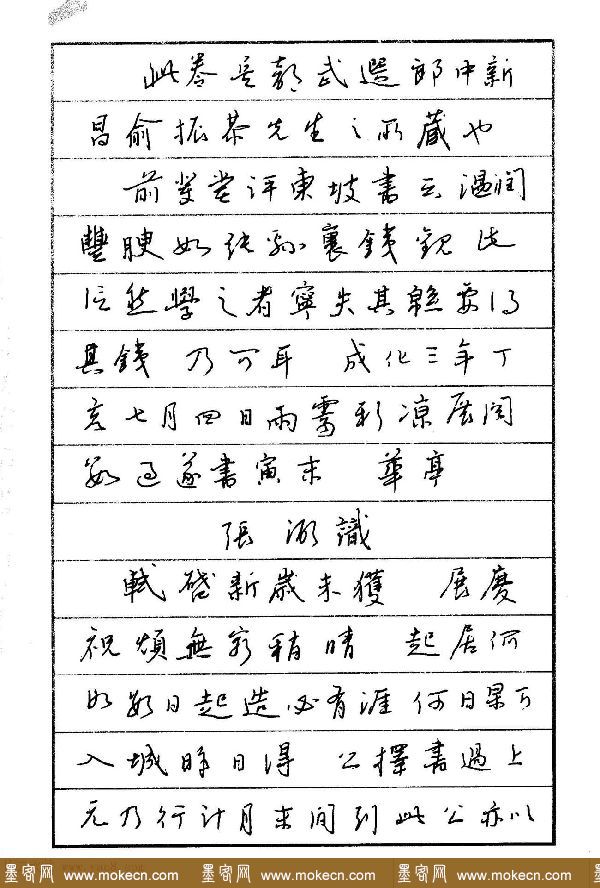 此卷兵部武選郎中新
昌俞振恭先生之所藏也
前輩嘗評東坡書云温润
豐腴如純緜裹鐵觀此
信然學之者寧失其緜要得
其鐵 乃可耳 成化三年丁
亥七月四日雨霽新凉展阅
数过遂書寅末 華亭
張 溯識
軾啓新歲未獲 展慶
祝頌無窮稍晴 起居何
如数日起造必有涯何日果可
入城昨日得 公擇書過上
元乃行计月末间到此公亦以
墨客网 www.mokecn.com 墨客网 www.mokecn.com 墨客网 www.mokecn.com